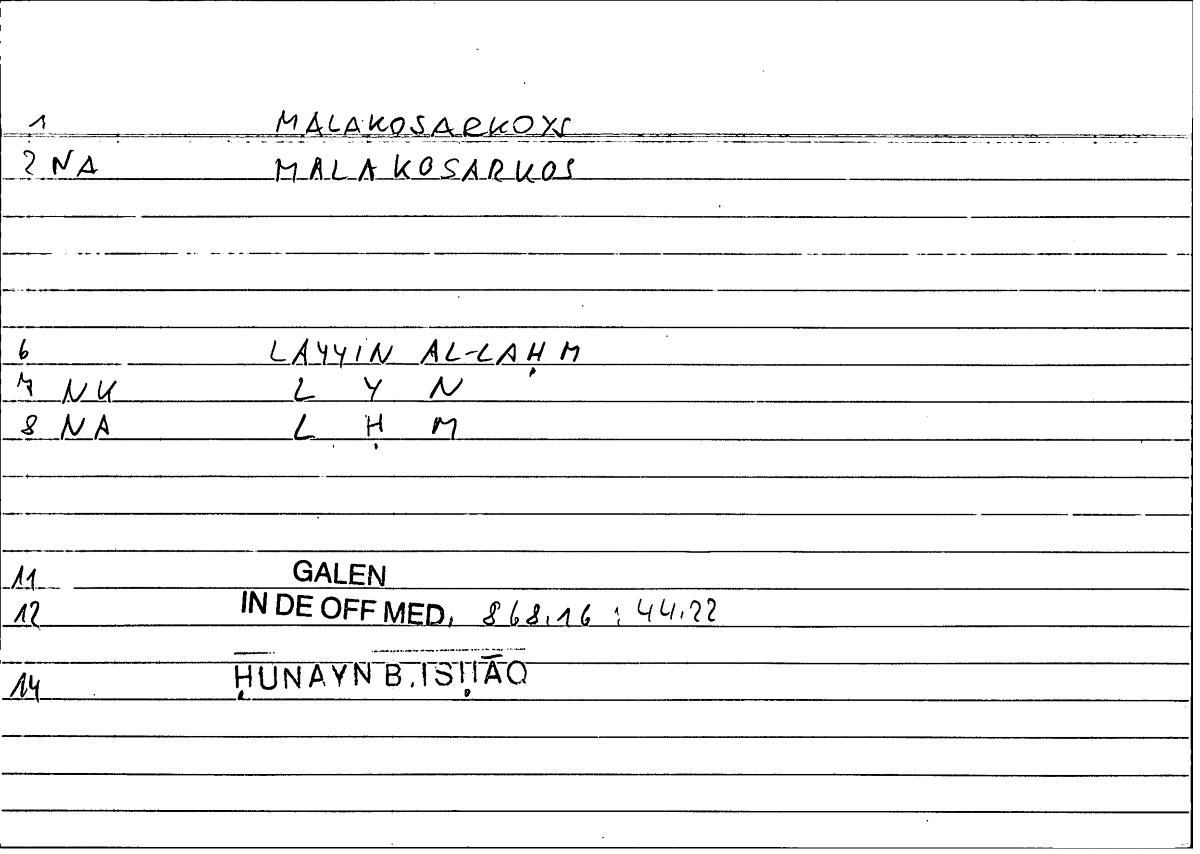 1 MALAKOSARKOYS
2 NA MALAKOSARKOS
6 LAYYIN AL-LAḤM
7 NK L Y N
8 NA L Ḥ M
11 GALEN
12 IN DE OFF MED, 868,16 : 44,22
14 ḤUNAYN B. ISḤĀQ